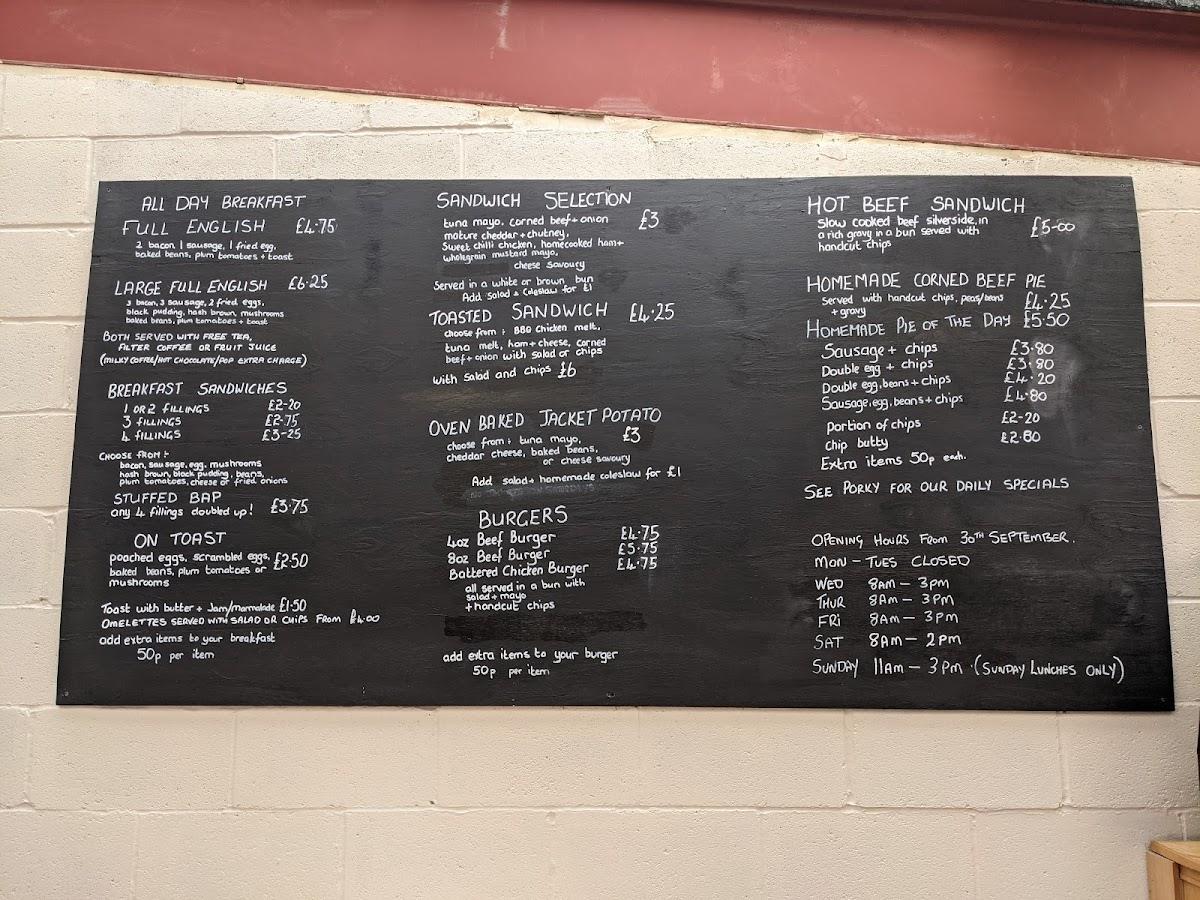 ALL DAY BREAKFAST
FULL ENGLISH £4.75
2 bacon, 1 sausage, 1 fried egg,
baked beans, plum tomatoes + toast
LARGE FULL ENGLISH £6.25
3 bacon, 3 sausage, 2 fried eggs,
black pudding, hash brown, mushrooms
baked beans, plum tomatoes + toast
BOTH SERVED WITH FREE TEA,
FILTER COFFEE OR FRUIT JUICE
(MILKY COFFEE/HOT CHOCOLATE/POP EXTRA CHARGE)
BREAKFAST SANDWICHES
1 OR 2 FILLINGS £2-20
3 FILLINGS £2.75
4 FILLINGS £3-25
CHOOSE FROM :-
bacon, sausage, egg, mushrooms
hash brown, black pudding, beans,
plum tomatoes, cheese or fried onions
STUFFED BAP
any 4 fillings doubled up! £3.75
ON TOAST
poached eggs, scrambled eggs, £2.50
baked beans, plum tomatoes or
mushrooms
Toast with butter + Jam/marmalade £1.50
OMELETTES SERVED WITH SALAD OR CHIPS FROM £4.00
add extra items to your breakfast
50p per item
SANDWICH SELECTION
tuna mayo, corned beef + onion £3
mature cheddar + chutney,
Sweet chilli chicken, homecooked ham +
wholegrain mustard mayo,
cheese savoury
Served in a white or brown bun
Add salad + coleslaw for £1
TOASTED SANDWICH £4.25
choose from : BBQ Chicken melt,
tuna melt, ham + cheese, corned
beef + onion with salad or chips
with salad and chips £6
OVEN BAKED JACKET POTATO
choose from : tuna mayo, £3
cheddar cheese, baked beans,
or cheese savoury
Add salad + homemade coleslaw for £1
BURGERS
4oz Beef Burger £4.75
8oz Beef Burger £5.75
Battered Chicken Burger £4.75
all served in a bun with
salad + mayo
+ handcut chips
add extra items to your burger
50p per item
HOT BEEF SANDWICH
Slow cooked beef silverside, in
a rich gravy in a bun served with £5-00
handcut chips
HOMEMADE CORNED BEEF PIE
served with handcut chips, peas/beans £4.25
+ gravy
HOMEMADE PIE OF THE DAY £5.50
Sausage + chips £3.80
Double egg + chips £3.80
Double egg, beans + chips £4.20
Sausage, egg, beans + chips £4.80
portion of chips £2-20
chip butty £2.80
Extra items 50p each.
SEE PORKY FOR OUR DAILY SPECIALS
OPENING HOURS FROM 30TH SEPTEMBER.
MON - TUES CLOSED
WED 8AM - 3PM
THUR 8AM - 3PM
FRI 8AM - 3PM
SAT 8AM - 2PM
SUNDAY 11AM - 3PM (SUNDAY LUNCHES ONLY)